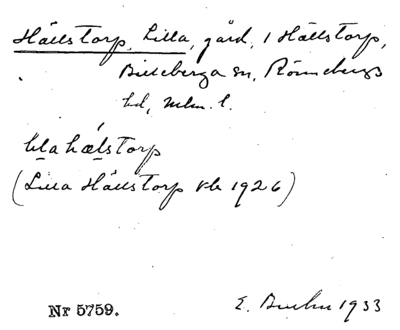 Hällstorp, Lilla, gård, 1 Hällstorp,
Billeberga sn, Rönnebergs
hd, Mlm. l.
lila hælstorp
(Lilla Hällstorp kb 1926)
Nr 5759.
E. 1933